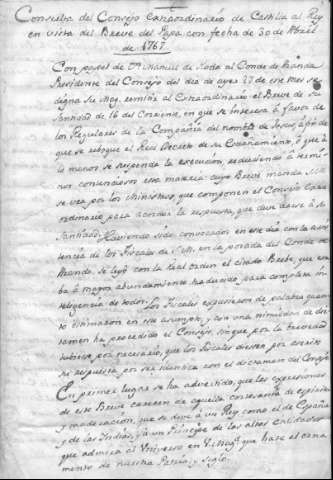 Consulta del Consejo Extraordinario de Castilla al Rey
en vista del Breve del Papa con fecha de 30 de Abril
de 1767
Con papel de Dn. Manuel de Roda al Conde de Aranda
Presidente del Consejo del dia de ayer 29 de este mes se
digna Su Mag. remitir al Extraordinario el Breve de su
Santidad de 16 del Corriente, en que se interesa à favor de
los Regulares de la Compañia del nombre de Jesus, à fin de
que se reboque el Real Decreto de su Estrañamiento, ó que à
lo menos se suspenda la execucion, reduciendo à termi-
nos contenciosos esta materia: cuyo Breve manda S.M.
se vea por los Ministros, que componen el Consejo Extra-
ordinario para acordar la respuesta, que deva darse à su
Santidad. Haviendo sido convocados en este dia con la asis-
tencia de los Fiscales de S.M. en la posada del Conde de
Aranda. Se leyó con la Real Orden el citado Breve, que esta-
ba
inteligencia de todos. Los Fiscales expusieron de palabra quan-
to estimaron en este asumpto; y con una uniformidad de dic-
tamen ha procedido el Consejo, sin que, por la brevedad
hubiese, por necesario, que los Fiscales diesen por escrito
su respuesta, por ser identica con el dictamen del Consejo.
En primer lugar se ha advertido, que las expresiones
de este Breve carecen de aquella cortesania de espiritu
y moderacion, que se deve à un Rey como el de España
y de las Indias, y à un Principe de las altas calidades
que admira el Universo en V. Magd. y que hace el orna-
mento de nuestra Patria y Siglo.